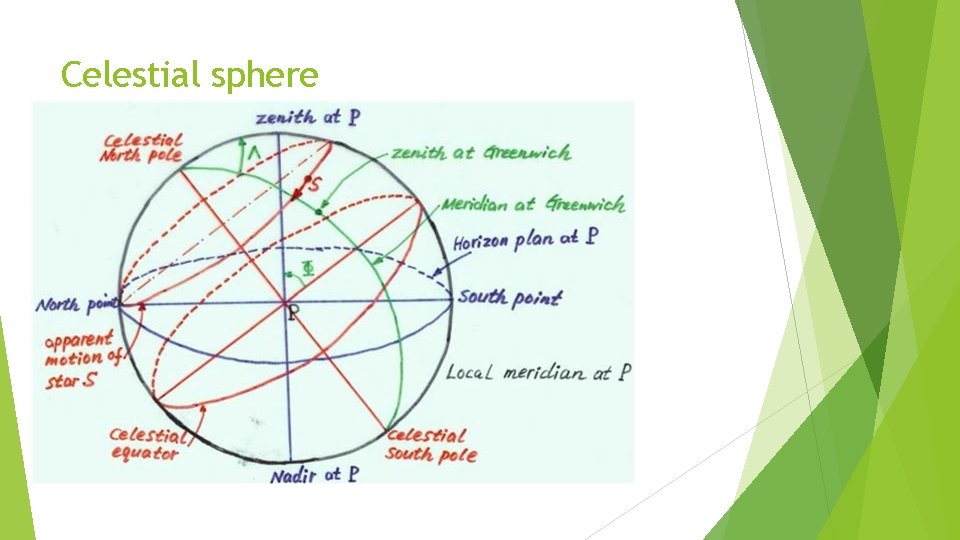 Celestial sphere
zenith at P
Celestial
North pole
Λ
zenith at Greenwich
S
Meridian at Greenwich
Horizon plan at P
Φ
North point
P
South point
apparent
motion of
star S
Local meridian at P
Celestial
equator
Celestial
South pole
Nadir at P